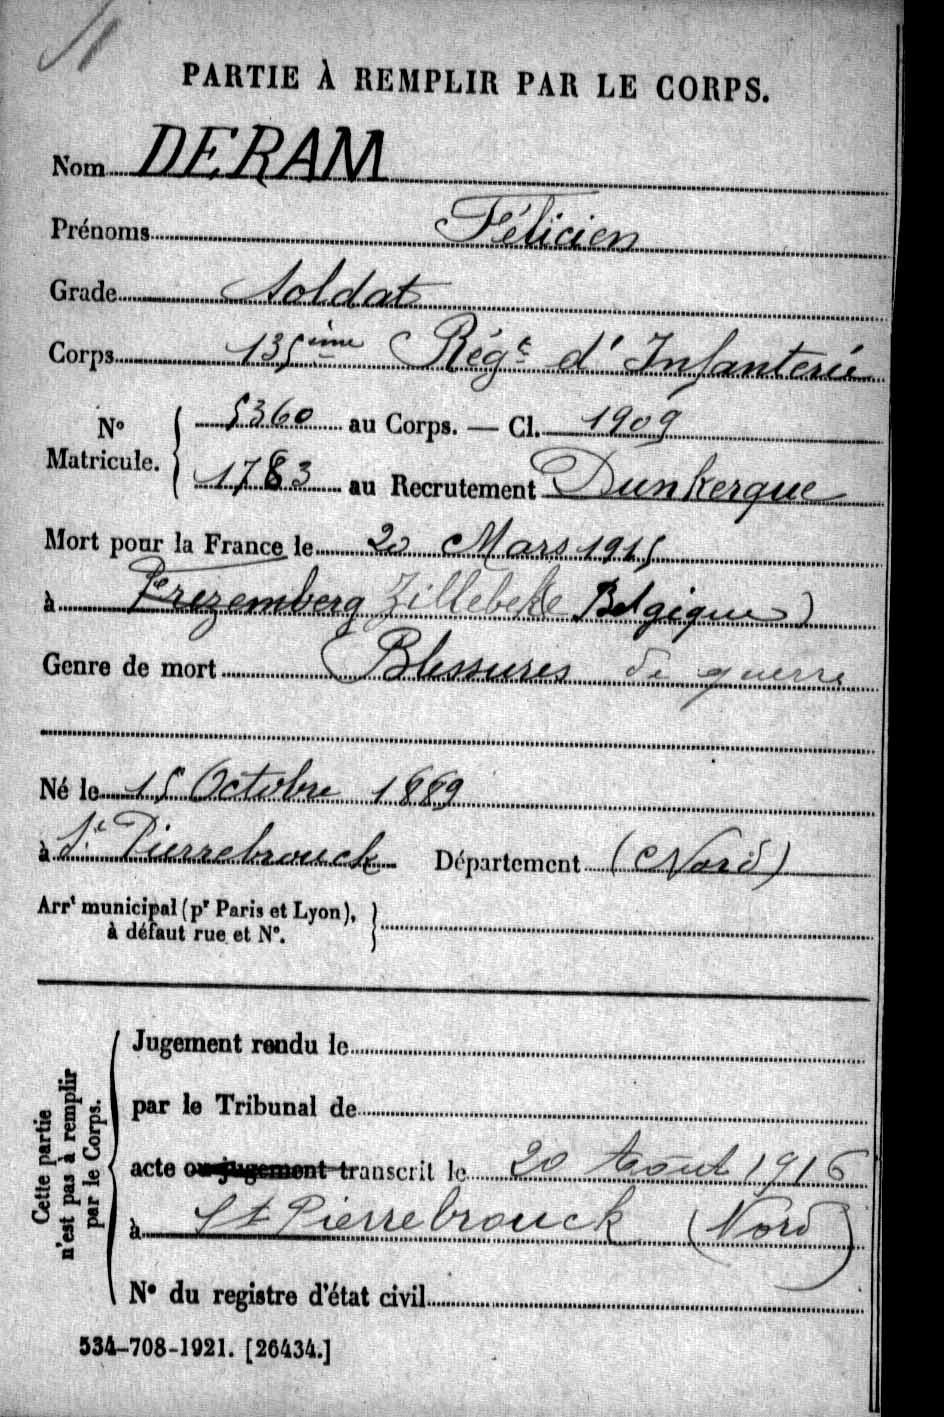 PARTIE À REMPLIR PAR LE CORPS.
Nom DERAM
Prénoms Félicien
Grade Soldat
Corps 135ème Régt d'Infanterie
N° Matricule. { 5360 au Corps. — Cl. 1909
1783 au Recrutement Dunkerque
Mort pour la France le 20 Mars 1915
à Frezemberg Zillebeke Belgique)
Genre de mort Blessures de guerre
Né le 15 Octobre 1889
à St Pierrebrouck Département (Nord)
Arrt municipal (pr Paris et Lyon),
à défaut rue et N°.
Cette partie
n'est pas à remplir
par le Corps.
Jugement rendu le
par le Tribunal de
acte ou jugement transcrit le 20 Août 1916
à St Pierrebrouck (Nord)
N° du registre d'état civil
534-708-1921. [26434.]